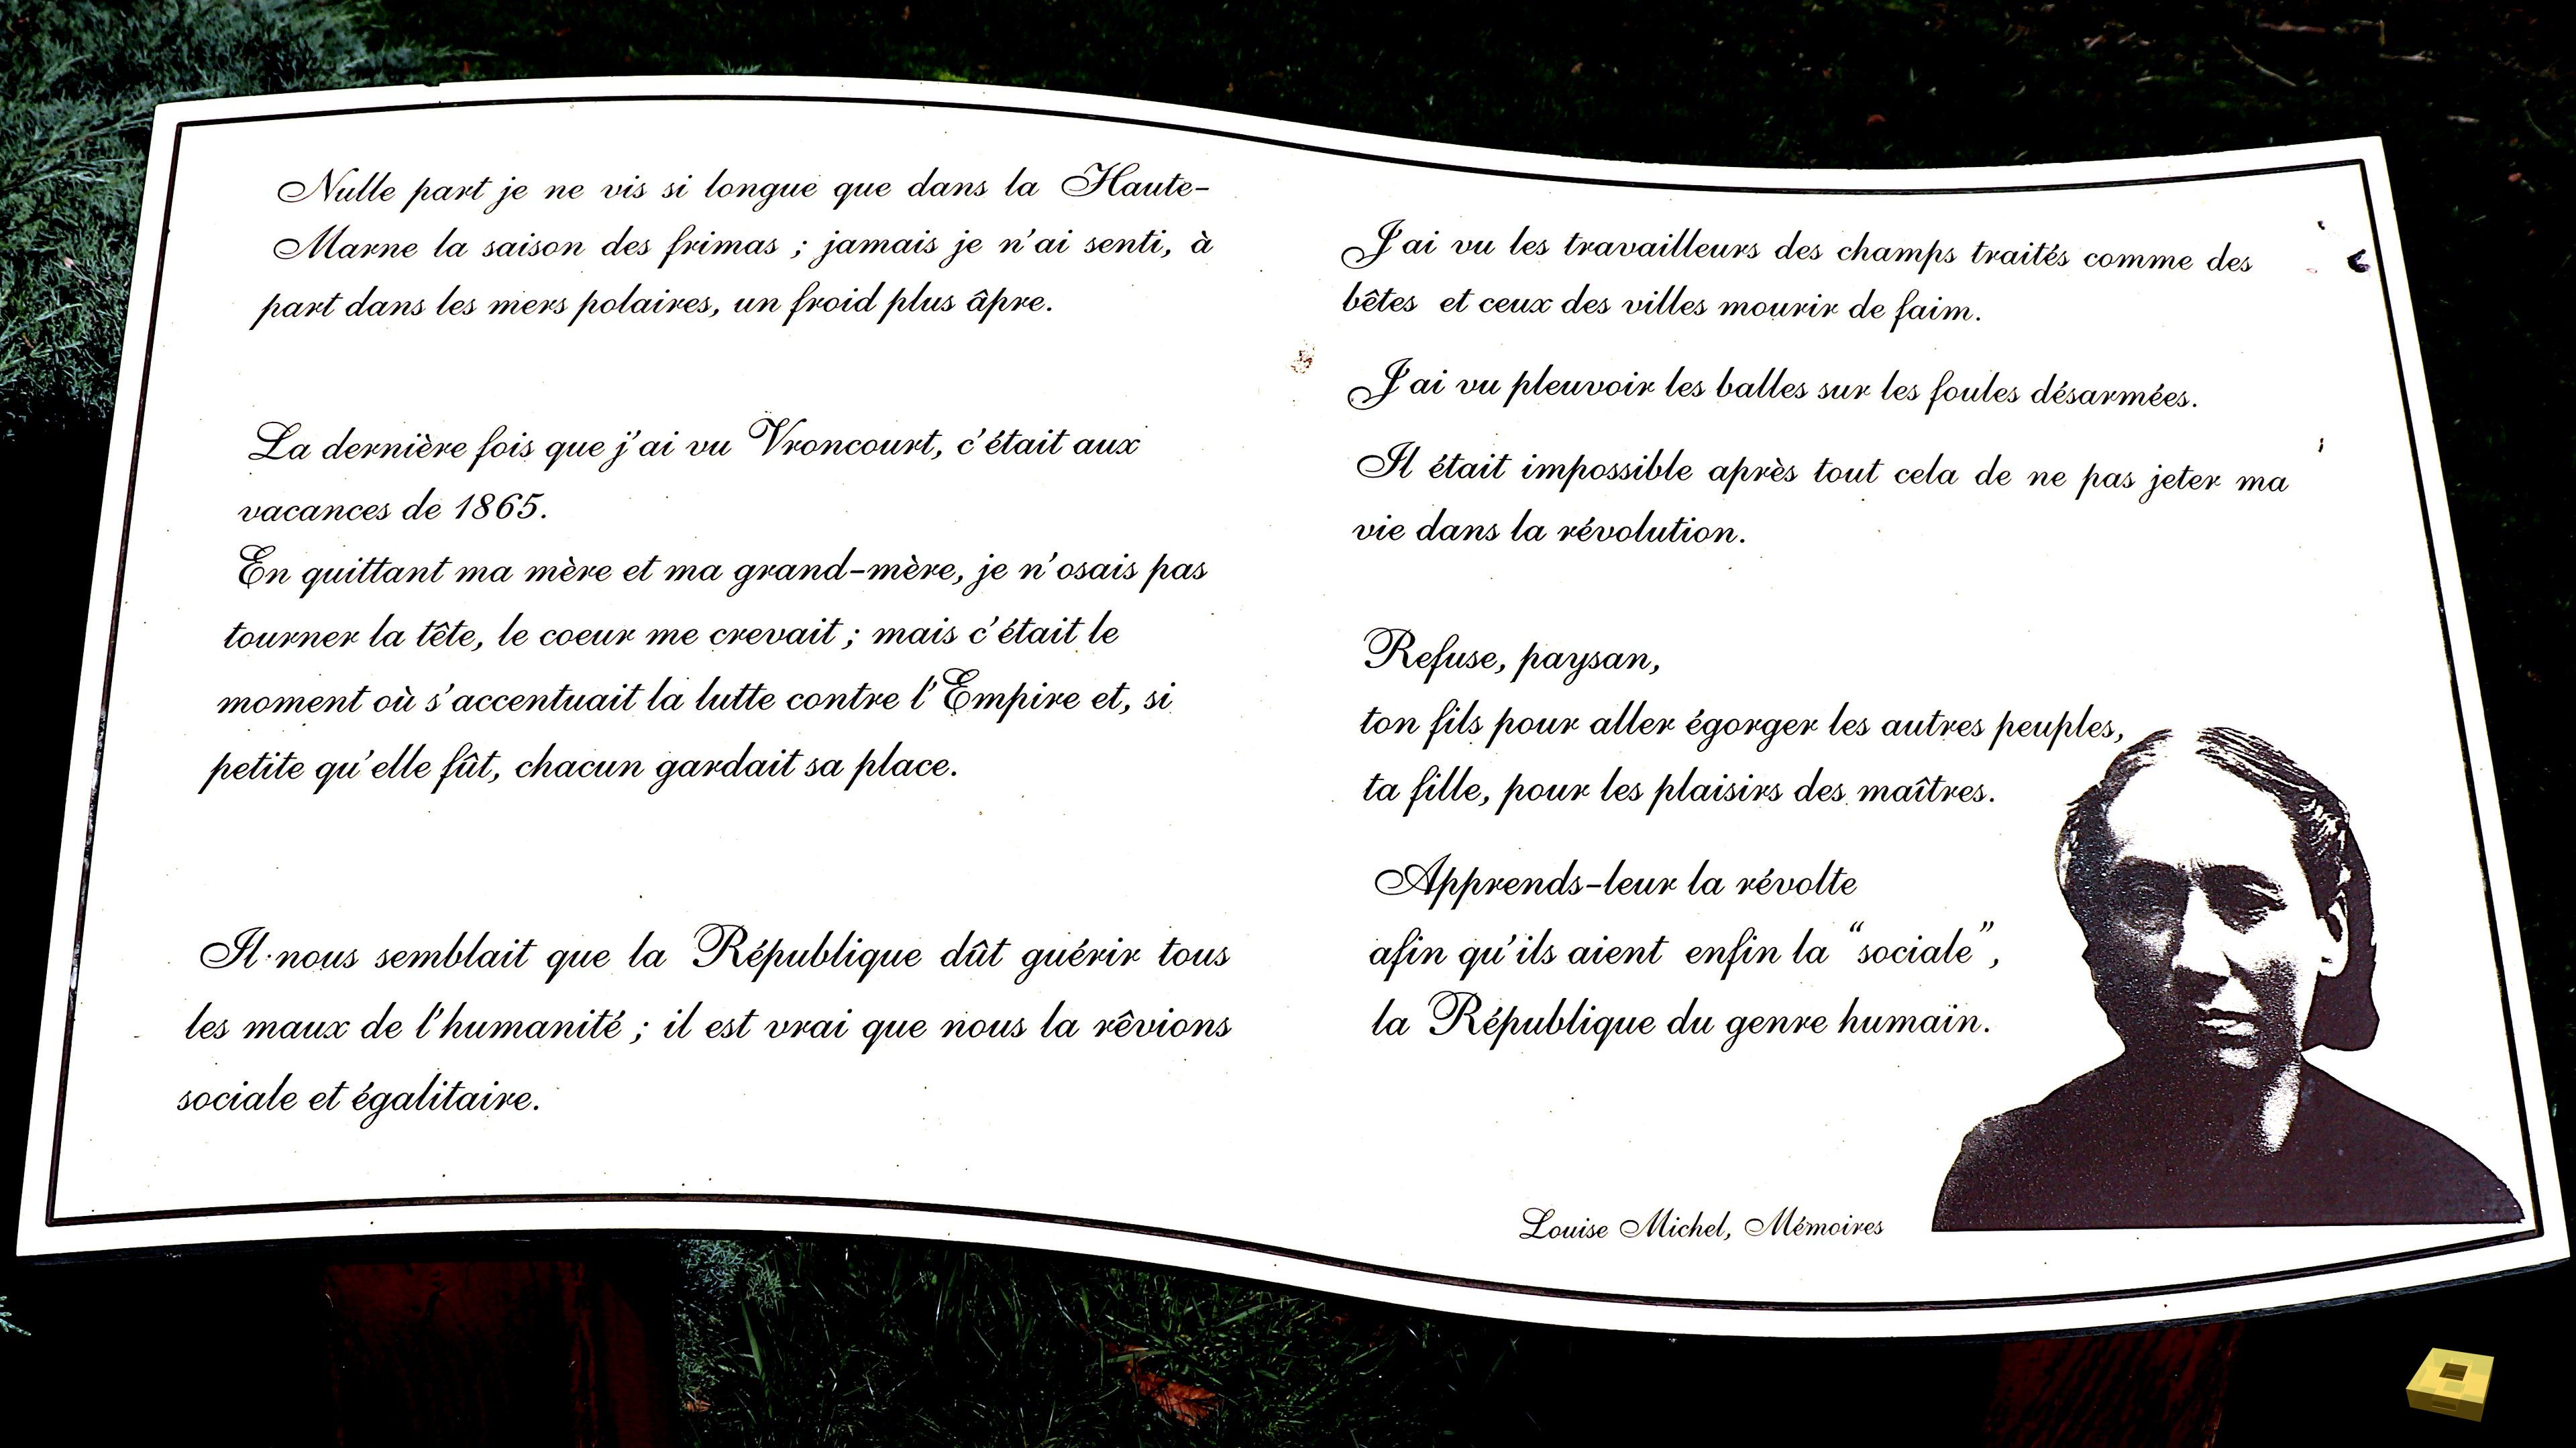 Nulle part je ne vis si longue que dans la Haute-
Marne la saison des frimas ; jamais je n'ai senti, à
part dans les mers polaires, un froid plus âpre.
La dernière fois que j'ai vu Vroncourt, c'était aux
vacances de 1865.
En quittant ma mère et ma grand-mère, je n'osais pas
tourner la tête, le coeur me crevait ; mais c'était le
moment où s'accentuait la lutte contre l'Empire et, si
petite qu'elle fût, chacun gardait sa place.
Il nous semblait que la République dût guérir tous
les maux de l'humanité ; il est vrai que nous la rêvions
sociale et égalitaire.
J'ai vu les travailleurs des champs traités comme des
bêtes et ceux des villes mourir de faim.
J'ai vu pleuvoir les balles sur les foules désarmées.
Il était impossible après tout cela de ne pas jeter ma
vie dans la révolution.
Refuse, paysan,
ton fils pour aller égorger les autres peuples,
ta fille, pour les plaisirs des maîtres.
Apprends-leur la révolte
afin qu'ils aient enfin la "sociale",
la République du genre humain.
Louise Michel, Mémoires